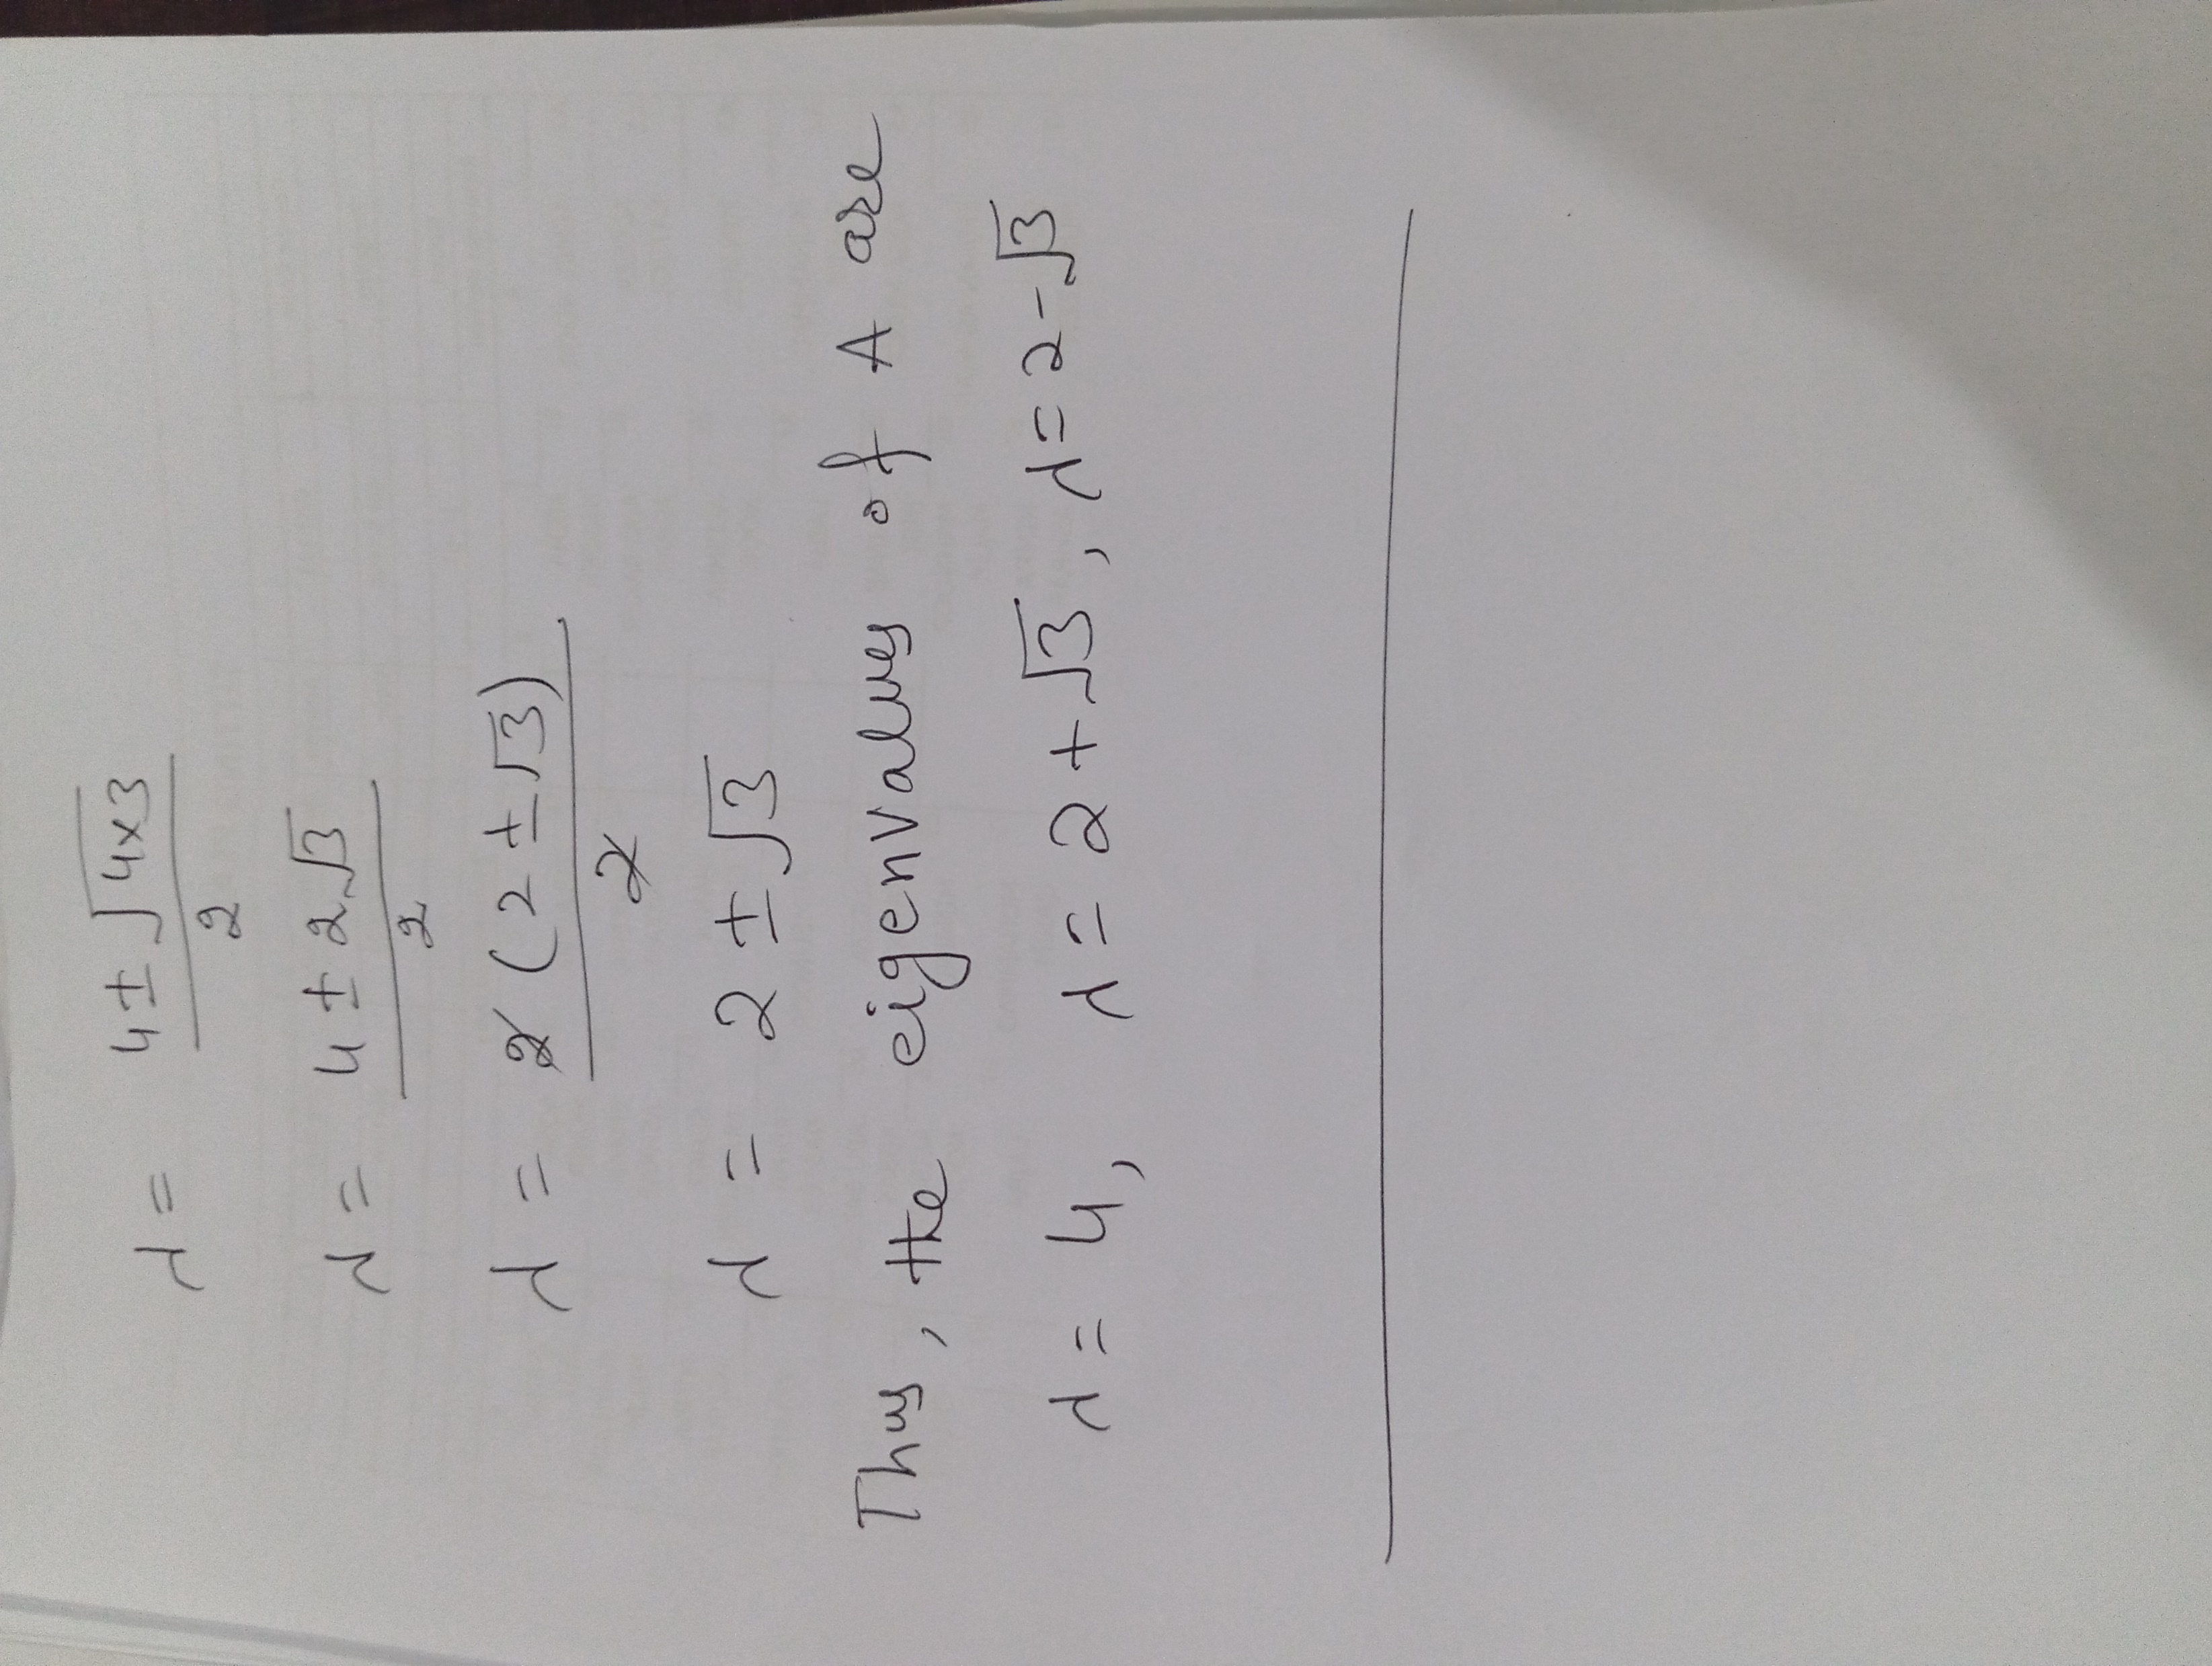 λ = (4 ± √(4×3)) / 2
λ = (4 ± 2√3) / 2
λ = 2 (2 ± √3) / 2
λ = 2 ± √3
Thus, the eigenvalues of A are
λ = 4, λ = 2 + √3, λ = 2 - √3